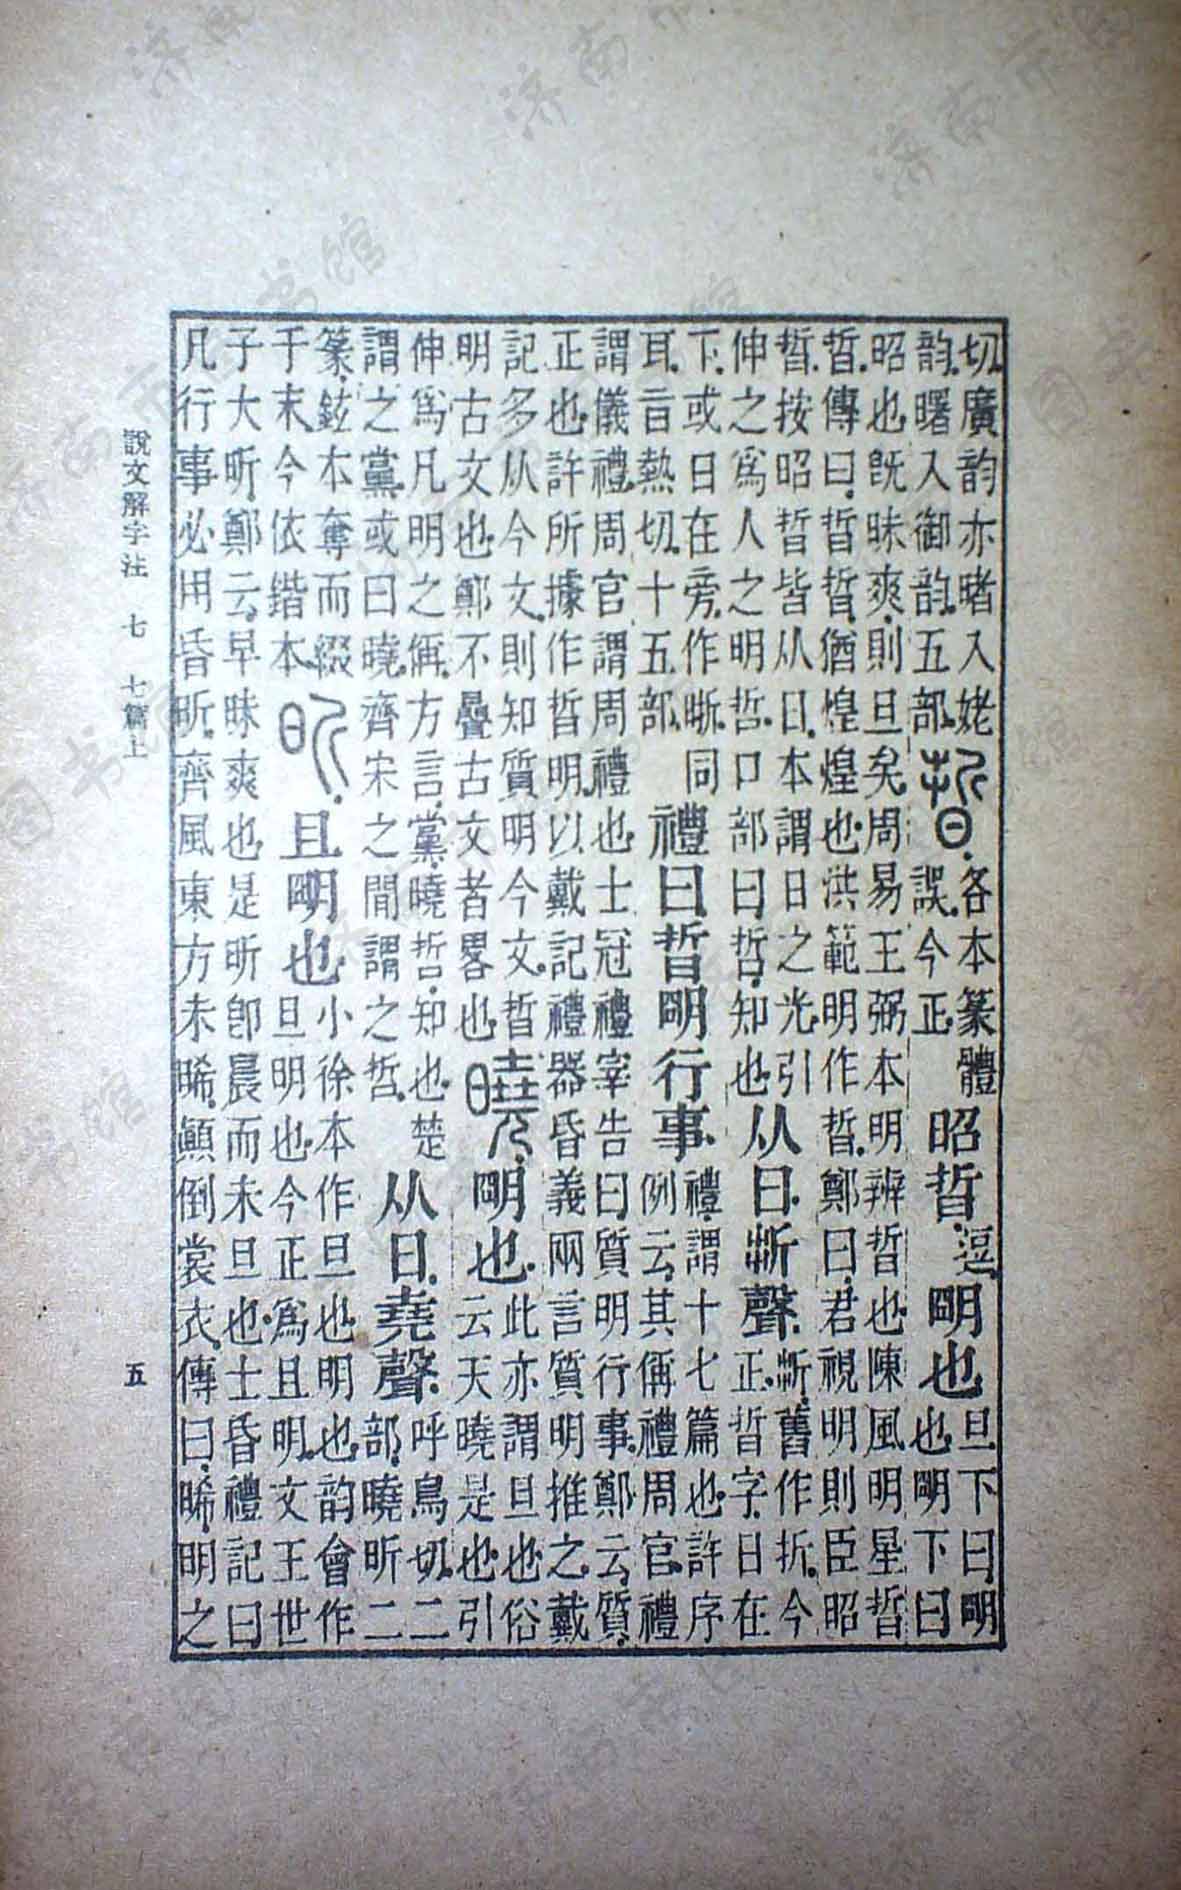 切廣韵亦暏入姥
韵曙入御韵五部
晢
各本篆體
誤今正
昭晢
逗
朙也
旦下曰朙
也朙下曰
昭也既昧爽則旦矣周易王弼本明辨晢也陳風明星晢
晢傳曰晢晢猶煌煌也洪範明作晢鄭曰君視明則臣昭
晢按昭晢皆从日本謂日之光引
伸之爲人之明哲口部曰哲知也
从日㪿聲
㪿舊作折今
正晢字日在
下或日在旁作晣同
耳旨熱切十五部
禮曰晢朙行事
禮謂十七篇也許序
例云其偁禮周官禮
謂儀禮周官謂周禮也士冠禮宰告曰質明行事鄭云質
正也許所據作晢明以戴記禮器昏義兩言質明推之戴
記多从今文則知質明今文晢
明古文也鄭不疊古文者畧也
曉
朙也
此亦謂旦也俗
云天曉是也引
伸爲凡明之偁方言黨曉哲知也楚
謂之黨或曰曉齊宋之閒謂之哲
从日堯聲
呼鳥切二
部曉昕二
篆鉉本奪而綴
于末今依鍇本
昕
且朙也
小徐本作旦也明也韵會作
旦明也今正爲且明文王世
子大昕鄭云早昧爽也是昕卽晨而未旦也士昏禮記曰
凡行事必用昏昕齊風東方未晞顚倒裳衣傳曰晞明之
說文解字注 七 七篇上 五